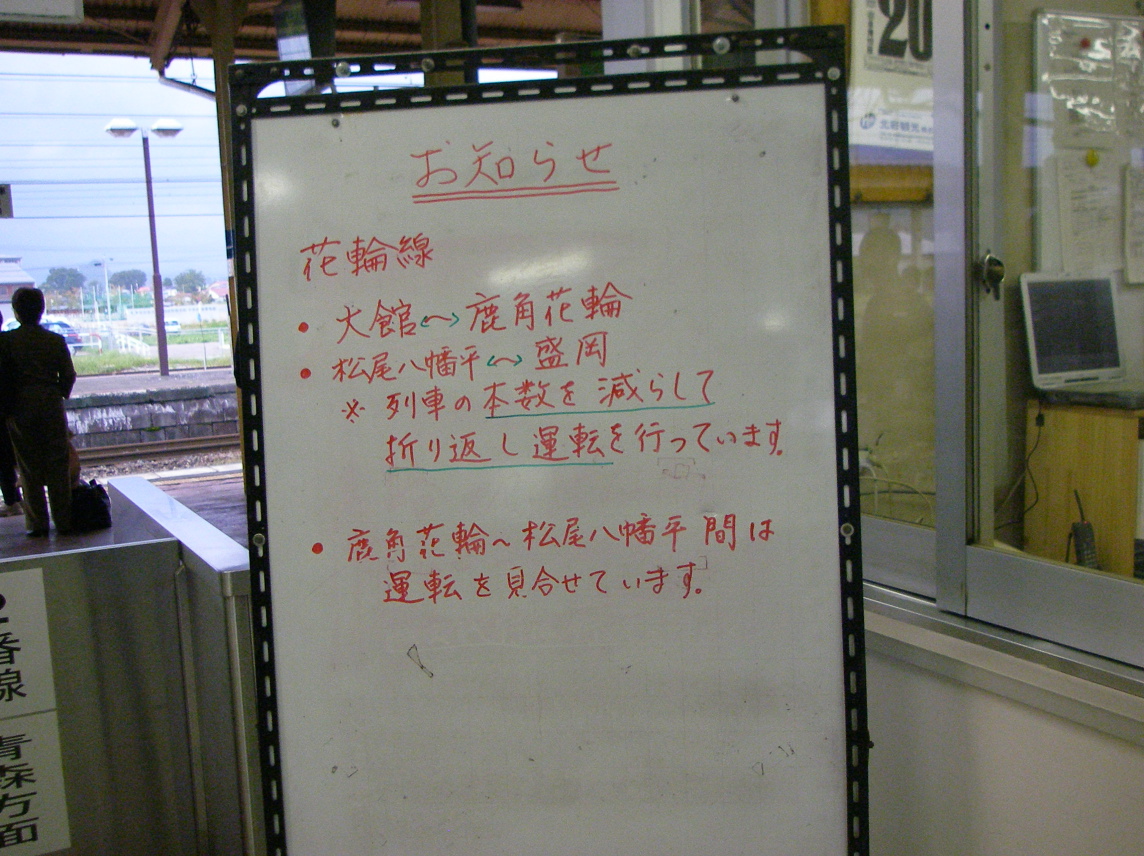 お知らせ
花輪線
• 大館↔鹿角花輪
• 松尾八幡平↔盛岡
※ 列車の本数を減らして
折り返し運転を行っています。
• 鹿角花輪～松尾八幡平間は
運転を見合せています。
20
2番線
青森方面